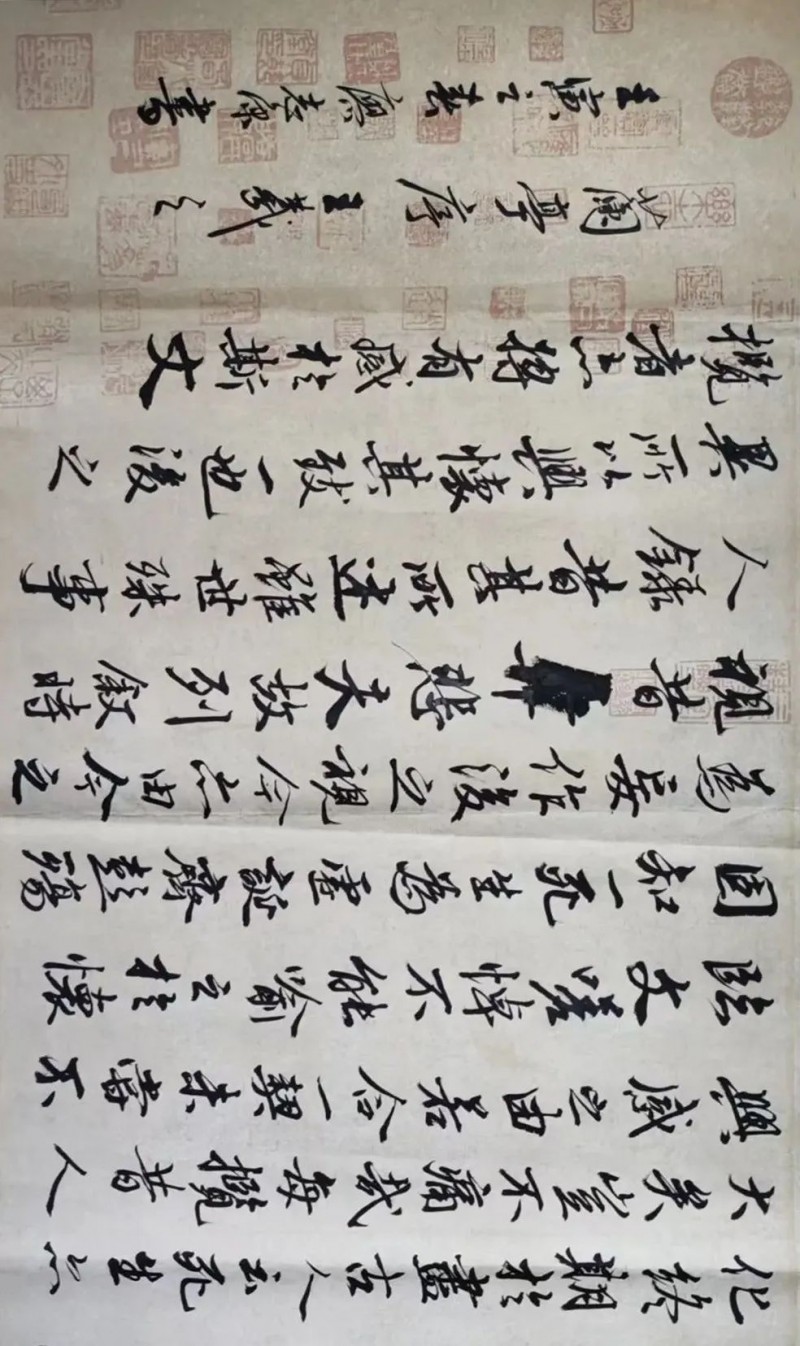 化終期於盡古人云死生亦
大矣豈不痛哉每攬昔人
興感之由若合一契未嘗不
臨文嗟悼不能喻之於懷
固知一死生為虛誕齊彭殤
為妄作後之視今亦由今之
視昔悲夫故列敘時
人錄昔其所述雖世殊事
異所以興懷其致一也後之
攬者亦將有感於斯文
蘭亭序 王羲之
壬寅之春 書